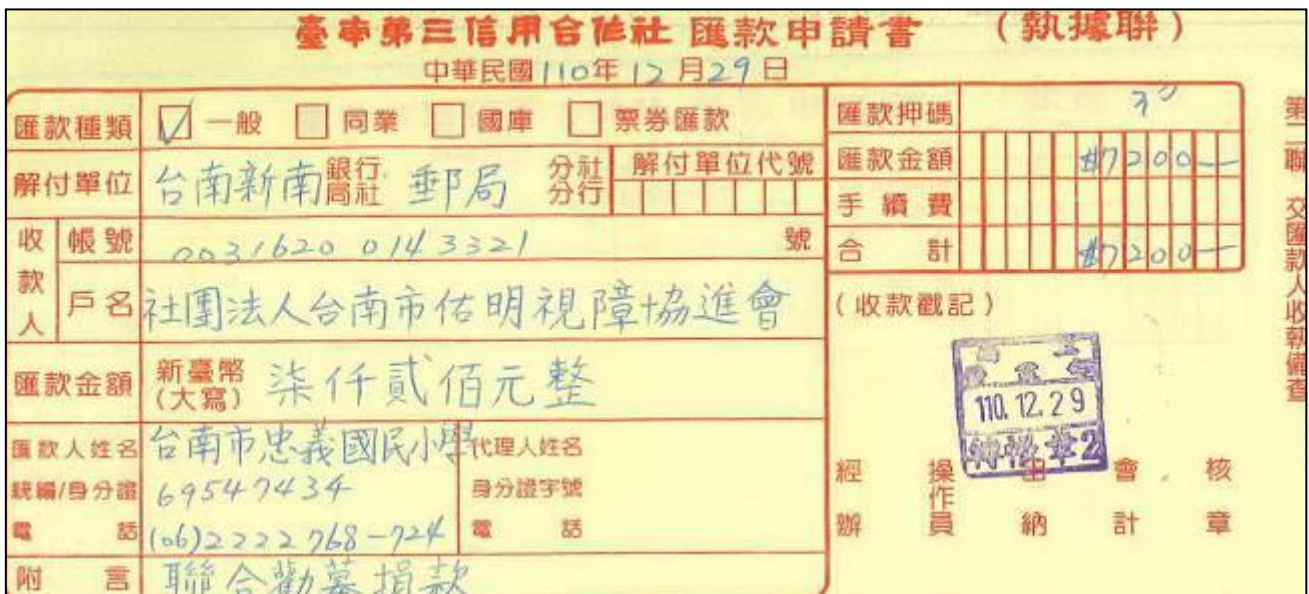 臺南第三信用合作社 匯款申請書 (執據聯)
中華民國110年12月29日
匯款種類 一般 同業 國庫 票券匯款
解付單位 台南新南 銀行 局社 郵局 分社 分行 解付單位代號
收款人 帳號 0031620 0143321 號
戶名 社團法人台南市佑明視障協進會
匯款金額 新臺幣 (大寫) 柒仟貳佰元整
匯款人姓名 台南市忠義國民小學 代理人姓名
統編/身分證 69547434 身分證字號
電話 (06)2222768-724 電話
附言 聯合勸募捐款
匯款押碼
匯款金額 #7200—
手續費
合計 #7200—
(收款戳記)
110.12.29
章2
經辦 操作員 出納 會計 核章
第二聯 交匯款人收執備查